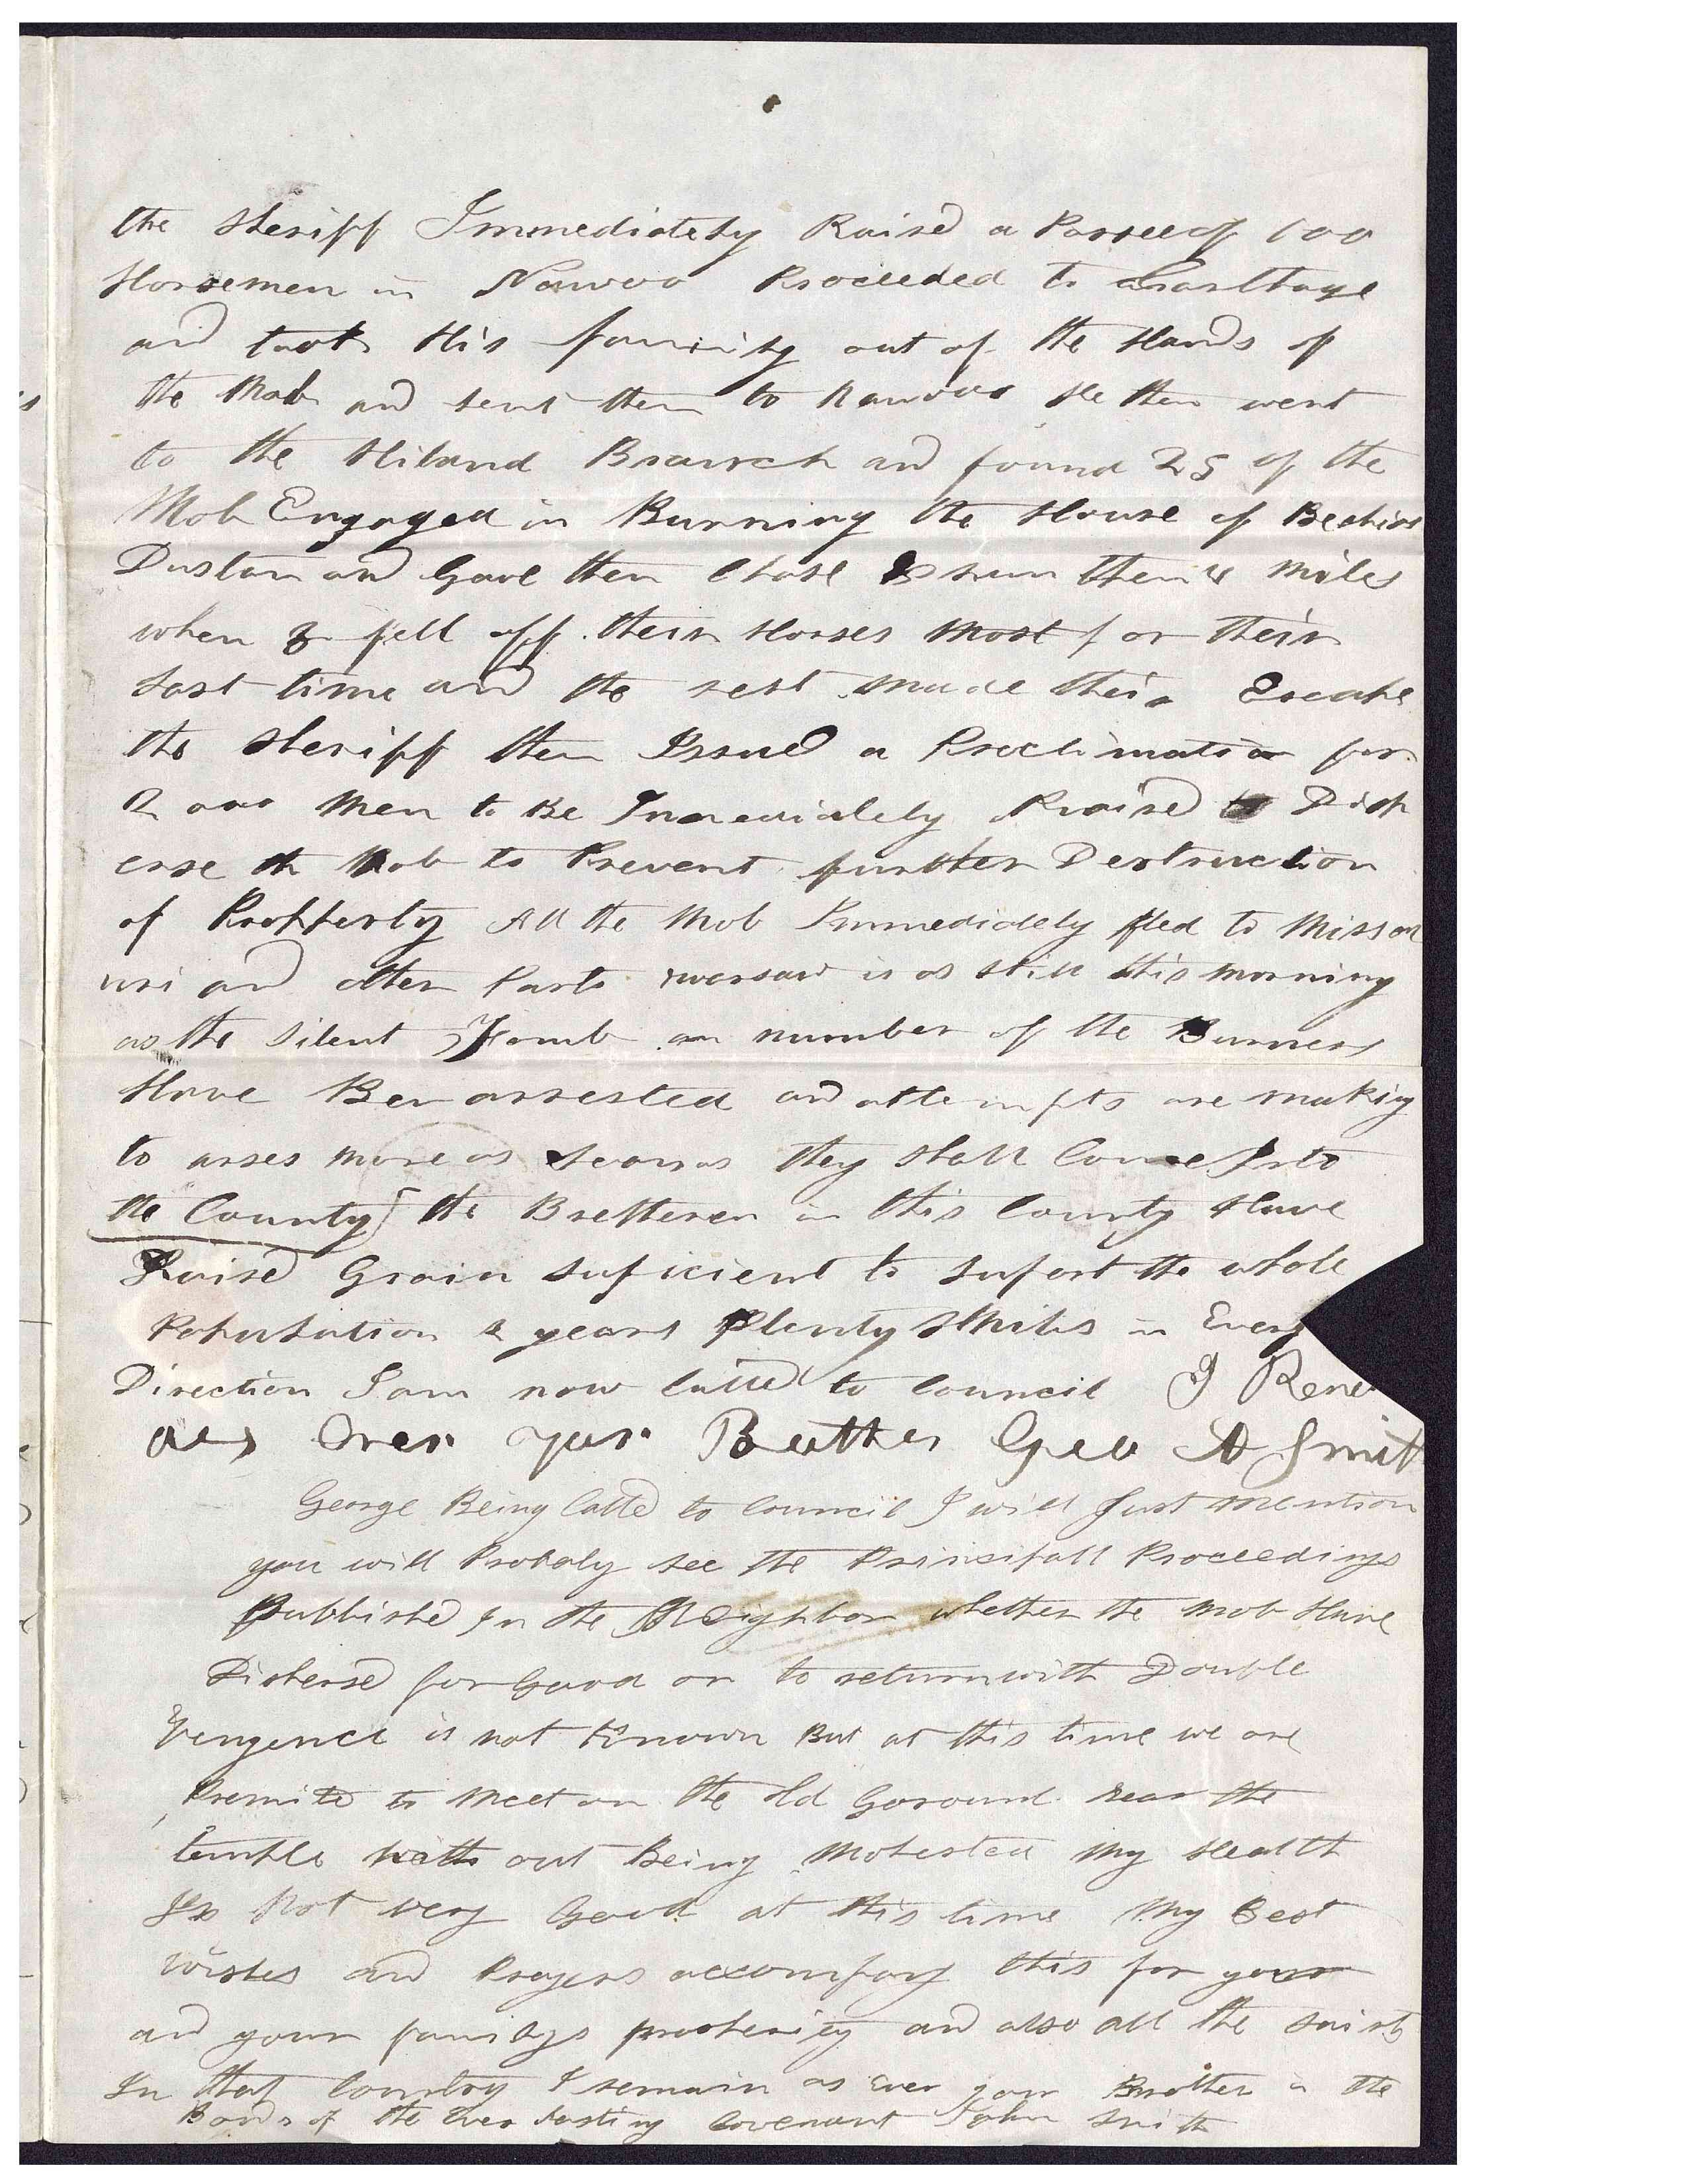 the Sheriff Immediately Raised a Posseeof 100
Horsemen in Nawoo Proceeded to Charltage
and took His family out of the Hands of
the Mob and sent them to Nauvoo He then went
to the Hiland Branch and found 25 of the
Mob Engaged in Burning the House of
Dustan and Gave then Chase & run them miles
when fell off their Horses Most for their
Last time and the rest made their Escape
the Sheriff then Issued a Proclimation for
2000 Men to Be Immediately Raised to Disp
erse th Mob to Prevent further Destruction
of Propperty All the Mob Immediately fled to Missou
uri and other Parts warsaw is as still this morning
as the Silent Tomb an number of the Burners
Have Ben arrested and attempts are making
to arres more as soon as they shall Come Into
the County the Bretheren in this County Have
Raised Grain suficient to suport the whole
Population 2 years Plenty Smiles in Every
Direction I am now Called to Council I Rem
as Ever your Brother Geo A Smit
George Being Called to Council I will Just mention
you will Probaly see the Prinsipall Proceedings
Published In the Neighbor whether the mob Have
Disperse for Good or to return with Double
Vengence is not Known But at this time we are
Premited to Meet on the old Goround near the
temple with out Being Molested My Health
Is Not very Good at this time My Best
Wishes and Prayers accompany this for your
and your familys prosperity and also all the saints
In that Country I remain as Ever your Brother in the
Bonds of the Ever lasting Covenant John Smith